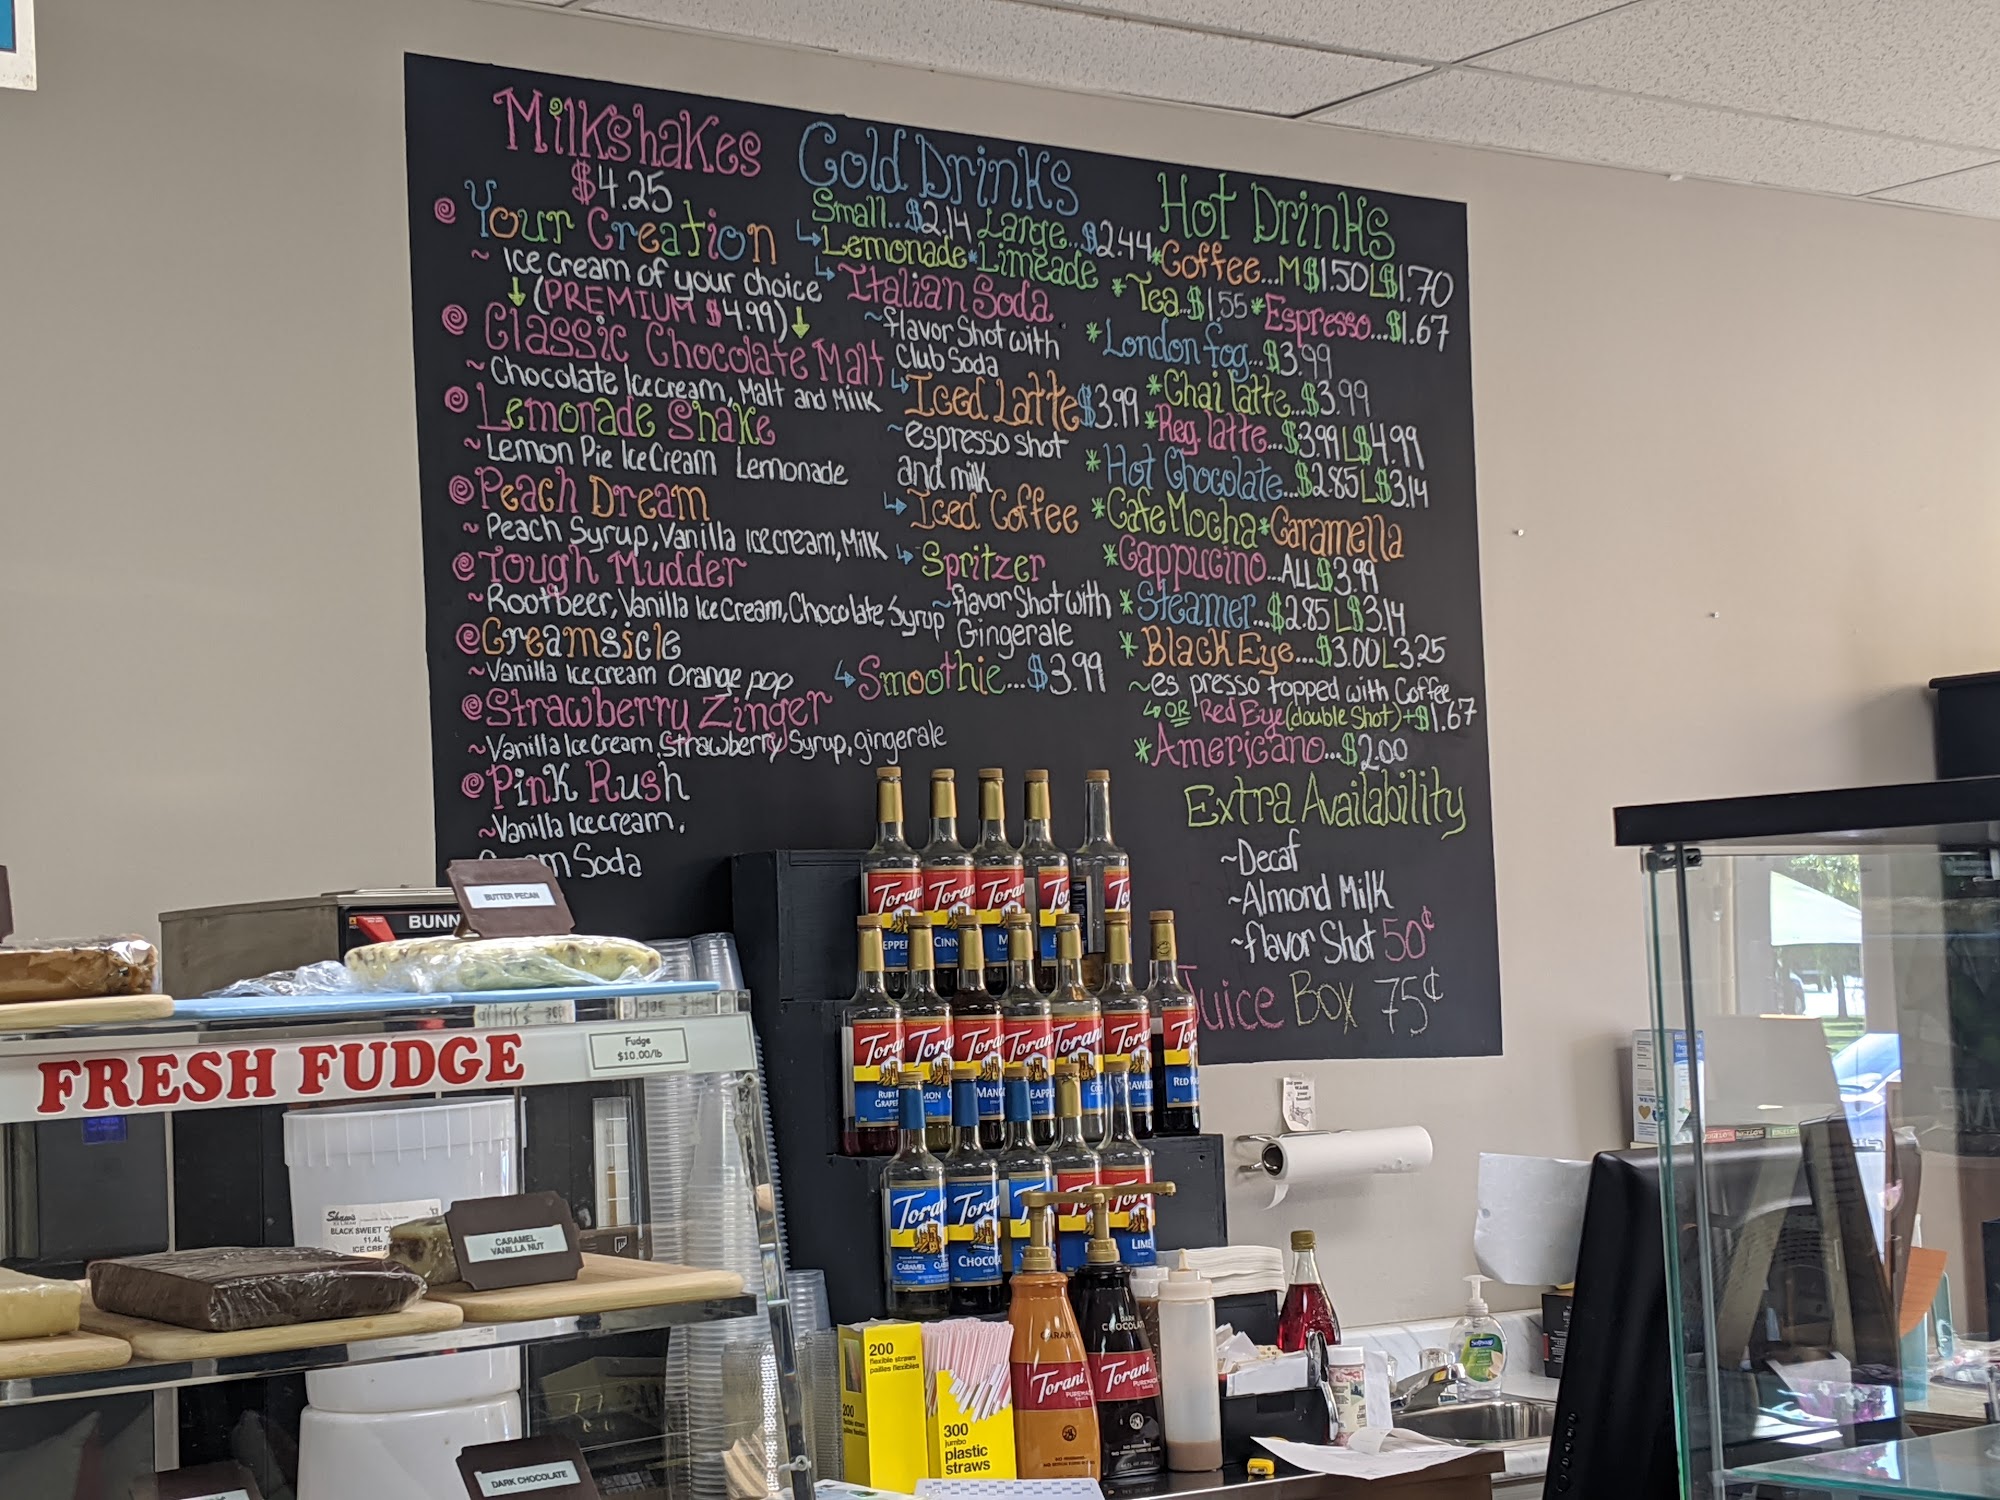 Milkshakes
$4.25
Your Creation
~ Ice cream of your choice
(PREMIUM $4.99)
Classic Chocolate Malt
~ Chocolate Ice cream, Malt and Milk
Lemonade Shake
~ Lemon Pie Ice Cream Lemonade
Peach Dream
~ Peach Syrup, Vanilla Ice cream, Milk
Tough Mudder
~ Rootbeer, Vanilla Ice Cream, Chocolate Syrup
Creamsicle
~ Vanilla Ice cream Orange pop
Strawberry Zinger
~ Vanilla Ice Cream, Strawberry Syrup, gingerale
Pink Rush
~ Vanilla Ice cream,
Soda
Cold Drinks
Small..$2.14 Large...$2.44
Lemonade * Limeade
Italian Soda
~ flavor Shot with
Club Soda
Iced Latte $3.99
~ espresso shot
and milk
Iced Coffee
Spritzer
~ flavor Shot with
Gingerale
Smoothie...$3.99
Hot Drinks
* Coffee...M $1.50 L $1.70
* Tea..$1.55 * Espresso...$1.67
* London fog...$3.99
* Chai latte...$3.99
* Reg. latte...$3.99 L $4.99
* Hot Chocolate...$2.85 L $3.14
* Cafe Mocha * Caramella
* Cappucino...ALL $3.99
* Steamer..$2.85 L $3.14
* Black Eye...$3.00 L 3.25
~ es presso topped with Coffee
OR Red Eye (double Shot) + $1.67
* Americano...$2.00
Extra Availability
~ Decaf
~ Almond Milk
~ flavor Shot 50¢
Juice Box 75¢
BUTTER PECAN
BUNN
FRESH FUDGE
Fudge
$10.00/lb
Shaw's
BLACK SWEET
11.4L
ICE CREA
CARAMEL
VANILLA NUT
DARK CHOCOLATE
Torani
Torani
Torani
CINN
Torani
Torani
Torani
RUBY
GRAPE
MANG
RED RA
Torani
CARAMEL
Torani
CHOCO
Torani
LIME
CARAM
Torani
PUREMADE
SAUCE
DARK
CHOCOLAT
Torani
PUREMADE
SAUCE
200
flexible straws
pailles flexibles
200
300
jumbo
plastic
straws
Softsoap